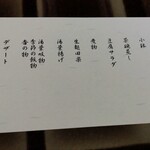 小鉢
茶碗蒸し
豆腐サラダ
煮物
生麩田楽
湯葉揚げ
湯葉吸物
季節の飯物
香の物
デザート